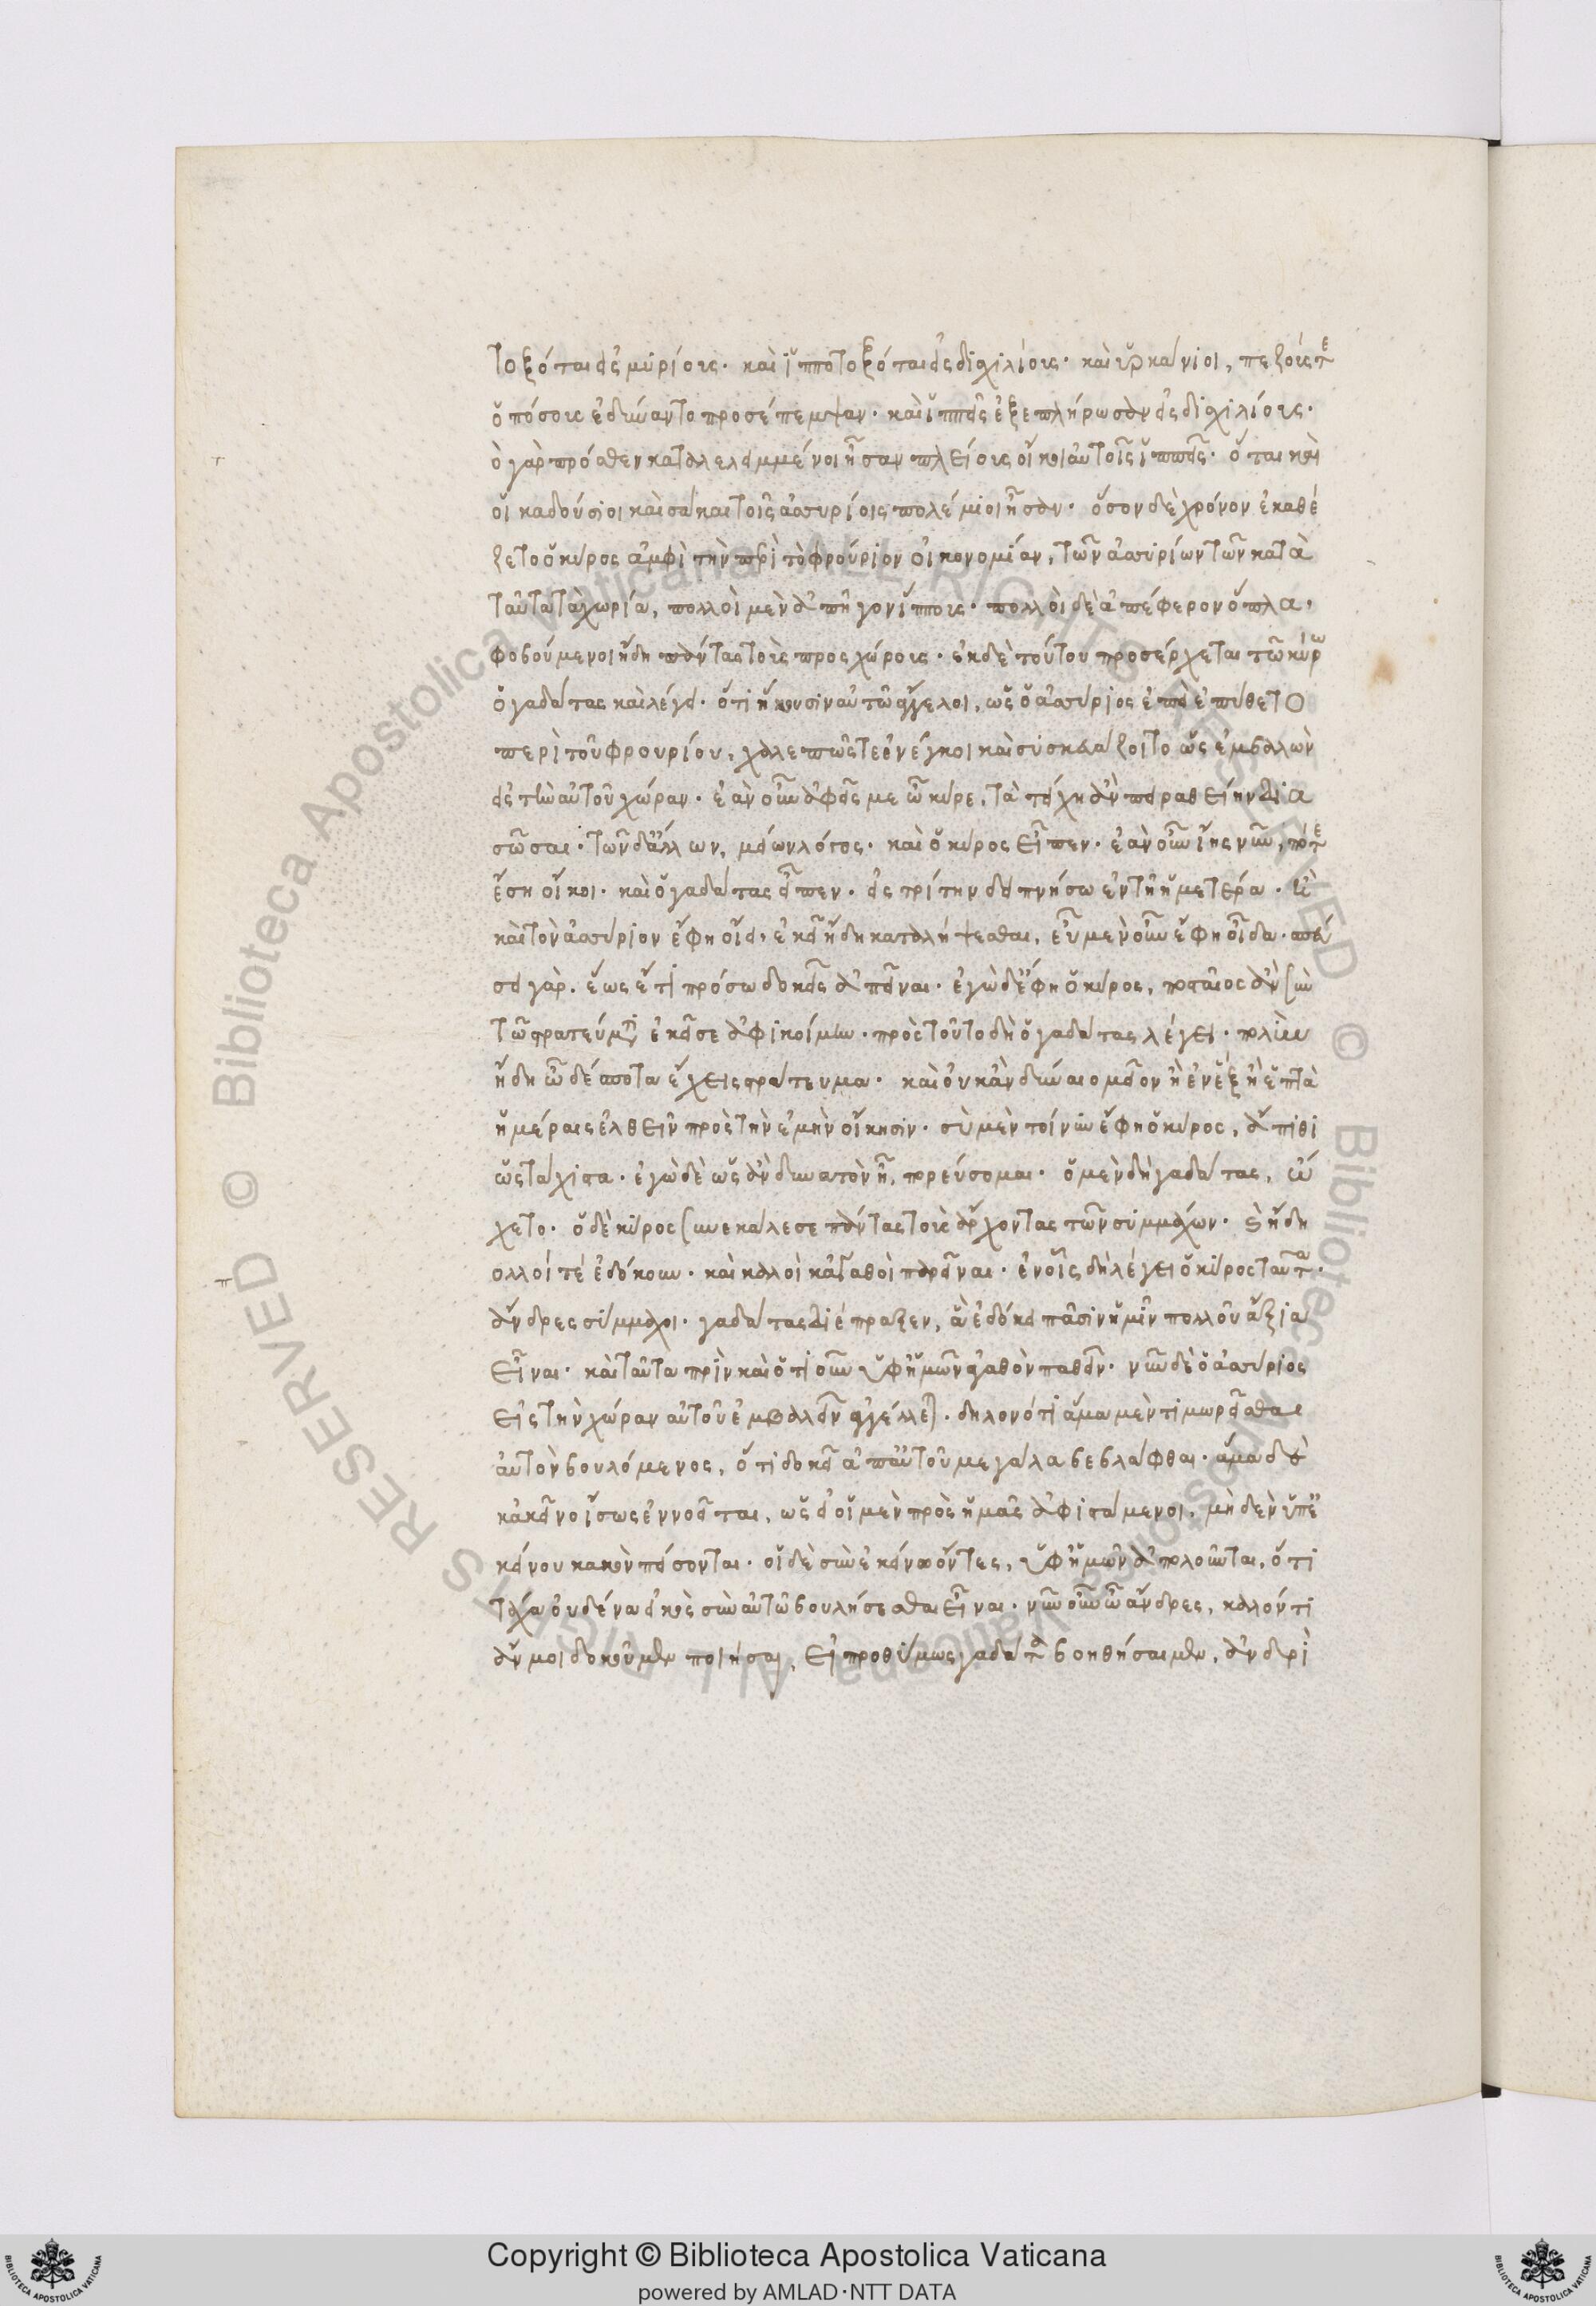 τοξόται εἰς μυρίους· καὶ ἱπποτοξόται εἰς δισχιλίους· καὶ ὑρκάνιοι, πεζούς τε
ὁπόσους ἐδύναντο προσέπεμψαν· καὶ ἱππεῖς ἐξεπλήρωσαν εἰς δισχιλίους·
ὁ γὰρ πρόσθεν καταλελειμμένοι ἦσαν πλείους οἴκοι αὐτοῖς ἱππεῖς· ὅται καὶ
οἱ καδούσιοι καὶ σάκαι τοῖς ἀσσυρίοις πολέμιοι ἦσαν· ὅσον δὲ χρόνον ἐκαθέ
ζετο ὁ κῦρος ἀμφὶ τὴν περὶ τὸ φρούριον οἰκονομίαν, τῶν ἀσσυρίων τῶν κατὰ
ταῦτα τὰ χωρία, πολλοὶ μὲν ἀπῆγον ἵππους· πολλοὶ δὲ ἀπέφερον ὅπλα,
φοβούμενοι ἤδη πάντας τοὺς προσχώρους· ἐκ δὲ τούτου προσέρχεται τῶ κύρω
ὁ γαδάτας καὶ λέγει· ὅτι ἥκουσιν αὐτῶ ἄγγελοι, ὡς ὁ ἀσσύριος ἐπεὶ ἐπύθετο
περὶ τοῦ φρουρίου, χαλεπῶς τε ἐνέγκοι καὶ συσκευάζοιτο ὡς ἐμβαλὼν
εἰς τὴν αὐτοῦ χώραν· ἐὰν οὖν ἀφῇς με ὦ κῦρε, τὰ τείχη ἂν πειραθείην δια
σῶσαι· τῶν δ' ἄλλων, μείων λόγος· καὶ ὁ κῦρος εἶπεν· ἐὰν οὖν ἴῃς νῦν, πότε
ἔσῃ οἴκοι· καὶ ὁ γαδάτας εἶπεν· εἰς τρίτην δειπνήσω ἐν τῇ ἡμετέρα· ἦ
καὶ τὸν ἀσσύριον ἔφη οἴει, ἐκεῖ ἤδη καταλήψεσθαι, εὖ μὲν οὖν ἔφη οἶδα· σπεύ
σει γὰρ. ἕως ἔτι πρόσω δοκεῖς ἀπεῖναι· ἐγὼ δ' ἔφη ὁ κῦρος, ποσταῖος ἂν σὺν
τῶ στρατεύματι ἐκεῖσε ἀφικοίμην· πρὸς τοῦτο δὴ ὁ γαδάτας λέγει· πολὺ
ἤδη ὦ δέσποτα ἔχεις στράτευμα· καὶ οὐκ ἂν δύναιο μεῖον ἢ ἐν ἓξ ἢ ἑπτὰ
ἡμέραις ἐλθεῖν πρὸς τὴν ἐμὴν οἴκησιν· σὺ μὲν τοίνυν ἔφη ὁ κῦρος, ἄπιθι
ὡς τάχιστα· ἐγὼ δὲ ὡς ἂν δυνατὸν ᾖ, πορεύσομαι· ὁ μὲν δὴ γαδάτας, ὤ
χετο· ὁ δὲ κῦρος συνεκάλεσε πάντας τοὺς ἄρχοντας τῶν συμμάχων· καὶ ἤδη
ολλοί τέ ἐδόκουν· καὶ καλοὶ κἀγαθοὶ παρεῖναι· ἐν οἷς δὴ λέγει ὁ κῦρος ταῦτα·
ἄνδρες σύμμαχοι· γαδάτας διέπραξεν, ἃ ἐδόκει πᾶσιν ἡμῖν πολλοῦ ἄξια
εἶναι· καὶ ταῦτα πρὶν καὶ ὁτιοῦν ὑφ' ἡμῶν ἀγαθὸν παθεῖν· νῦν δὲ ὁ ἀσσύριος
εἰς τὴν χώραν αὐτοῦ ἐμβαλεῖν ἀγγέλλεται· δηλονότι ἅμα μὲν τιμωρεῖσθαι
αὐτὸν βουλόμενος, ὅτι δοκεῖ ὑπ' αὐτοῦ μεγάλα βεβλάφθαι· ἅμα δὲ
κἀκεῖνο ἴσως ἐννοεῖται, ὡς εἰ οἱ μὲν πρὸς ἡμᾶς ἀφιστάμενοι, μηδὲν ὑπ' ἐ
κείνου κακὸν πείσονται· οἱ δὲ σὺν ἐκείνω ὄντες, ὑφ' ἡμῶν ἀπολοῦνται, ὅτι
τάχα οὐδένα εἰκὸς σὺν αὐτῶ βουλήσεσθαι εἶναι· νῦν οὖν ὦ ἄνδρες, καλόν τι
ἄν μοι δοκοῦμεν ποιῆσαι, εἰ προθύμως γαδάτα βοηθήσαιμεν, ἀνδρὶ
Copyright © Biblioteca Apostolica Vaticana
powered by AMLAD·NTT DATA